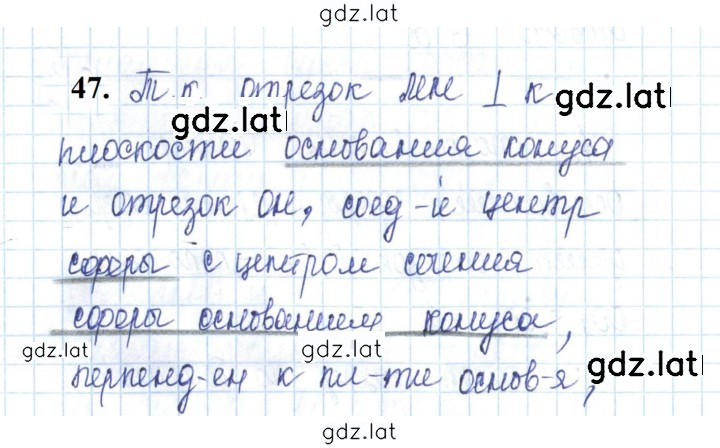 gdz.lat
47. Т.к. отрезок МН ⊥ к
gdz.lat
gdz.lat
плоскости основания конуса
и отрезок ОН, соед-ий центр
сферы с центром сечения
сферы основанием конуса,
gdz.lat
gdz.lat
gdz.lat
перпенд-ен к пл-ти основ-я,
gdz.lat